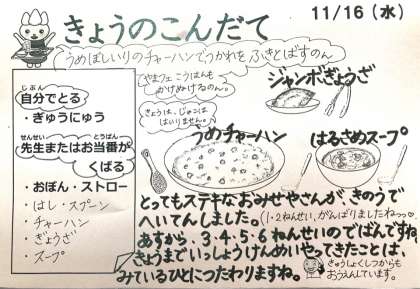 きょうのこんだて
11/16（水）
うめぼしいりのチャーハンでつかれをふきとばすのん
自分でとる
じぶん
・ぎゅうにゅう
先生またはお当番が
せんせい　とうばん
くばる
・おぼん・ストロー
・はし・スプーン
・チャーハン
・ぎょうざ
・スープ
やまフェ こうはんも
かけぬけるのん。
きょうは、じゃこは
はいりません。
ジャンボぎょうざ
うめチャーハン
はるさめスープ
とってもステキなおみせやさんが、きのうで
へいてんしました。(1・2ねんせい、がんばりましたねっっ♡)
あすから、3・4・5・6ねんせいのでばんですね。
きょうまでいっしょうけんめいやってきたことは、
みているひとにつたわりますね。
きゅうしょくしつからも
おうえんしています。